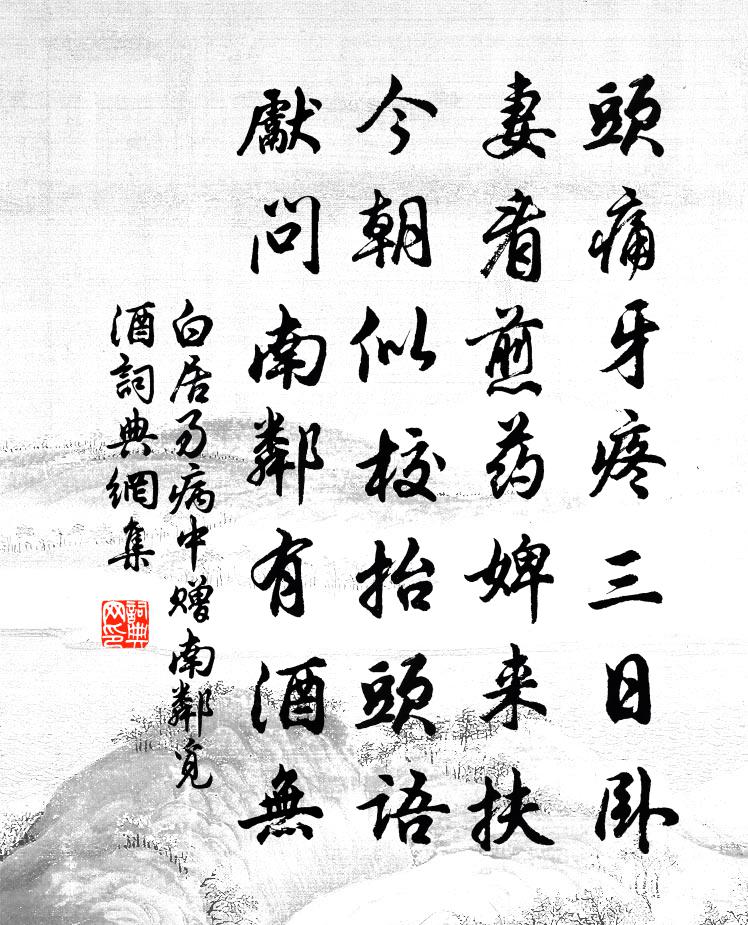 頭痛牙疼三日卧
妻看煎药婢来扶
今朝似校抬頭語
先問南鄰有酒無
白居易病中赠南鄰覓
酒詞典網集
詞典网印